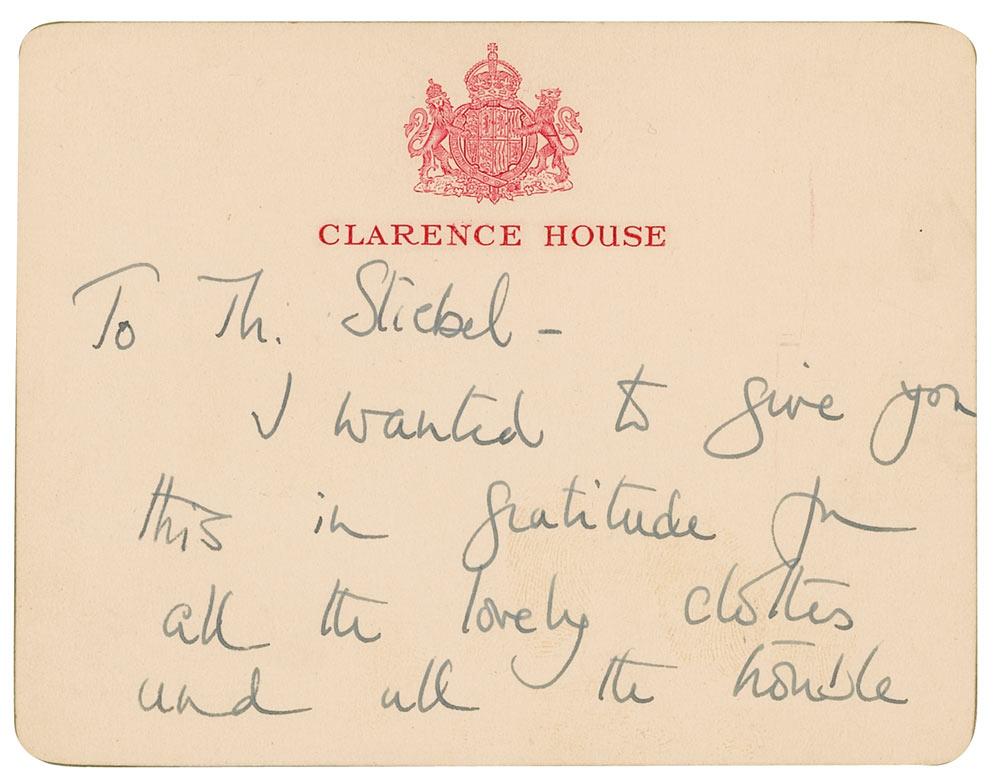 CLARENCE HOUSE
To Mr. Stiebel –
I wanted to give you
this in gratitude for
all the lovely clothes
and all the trouble